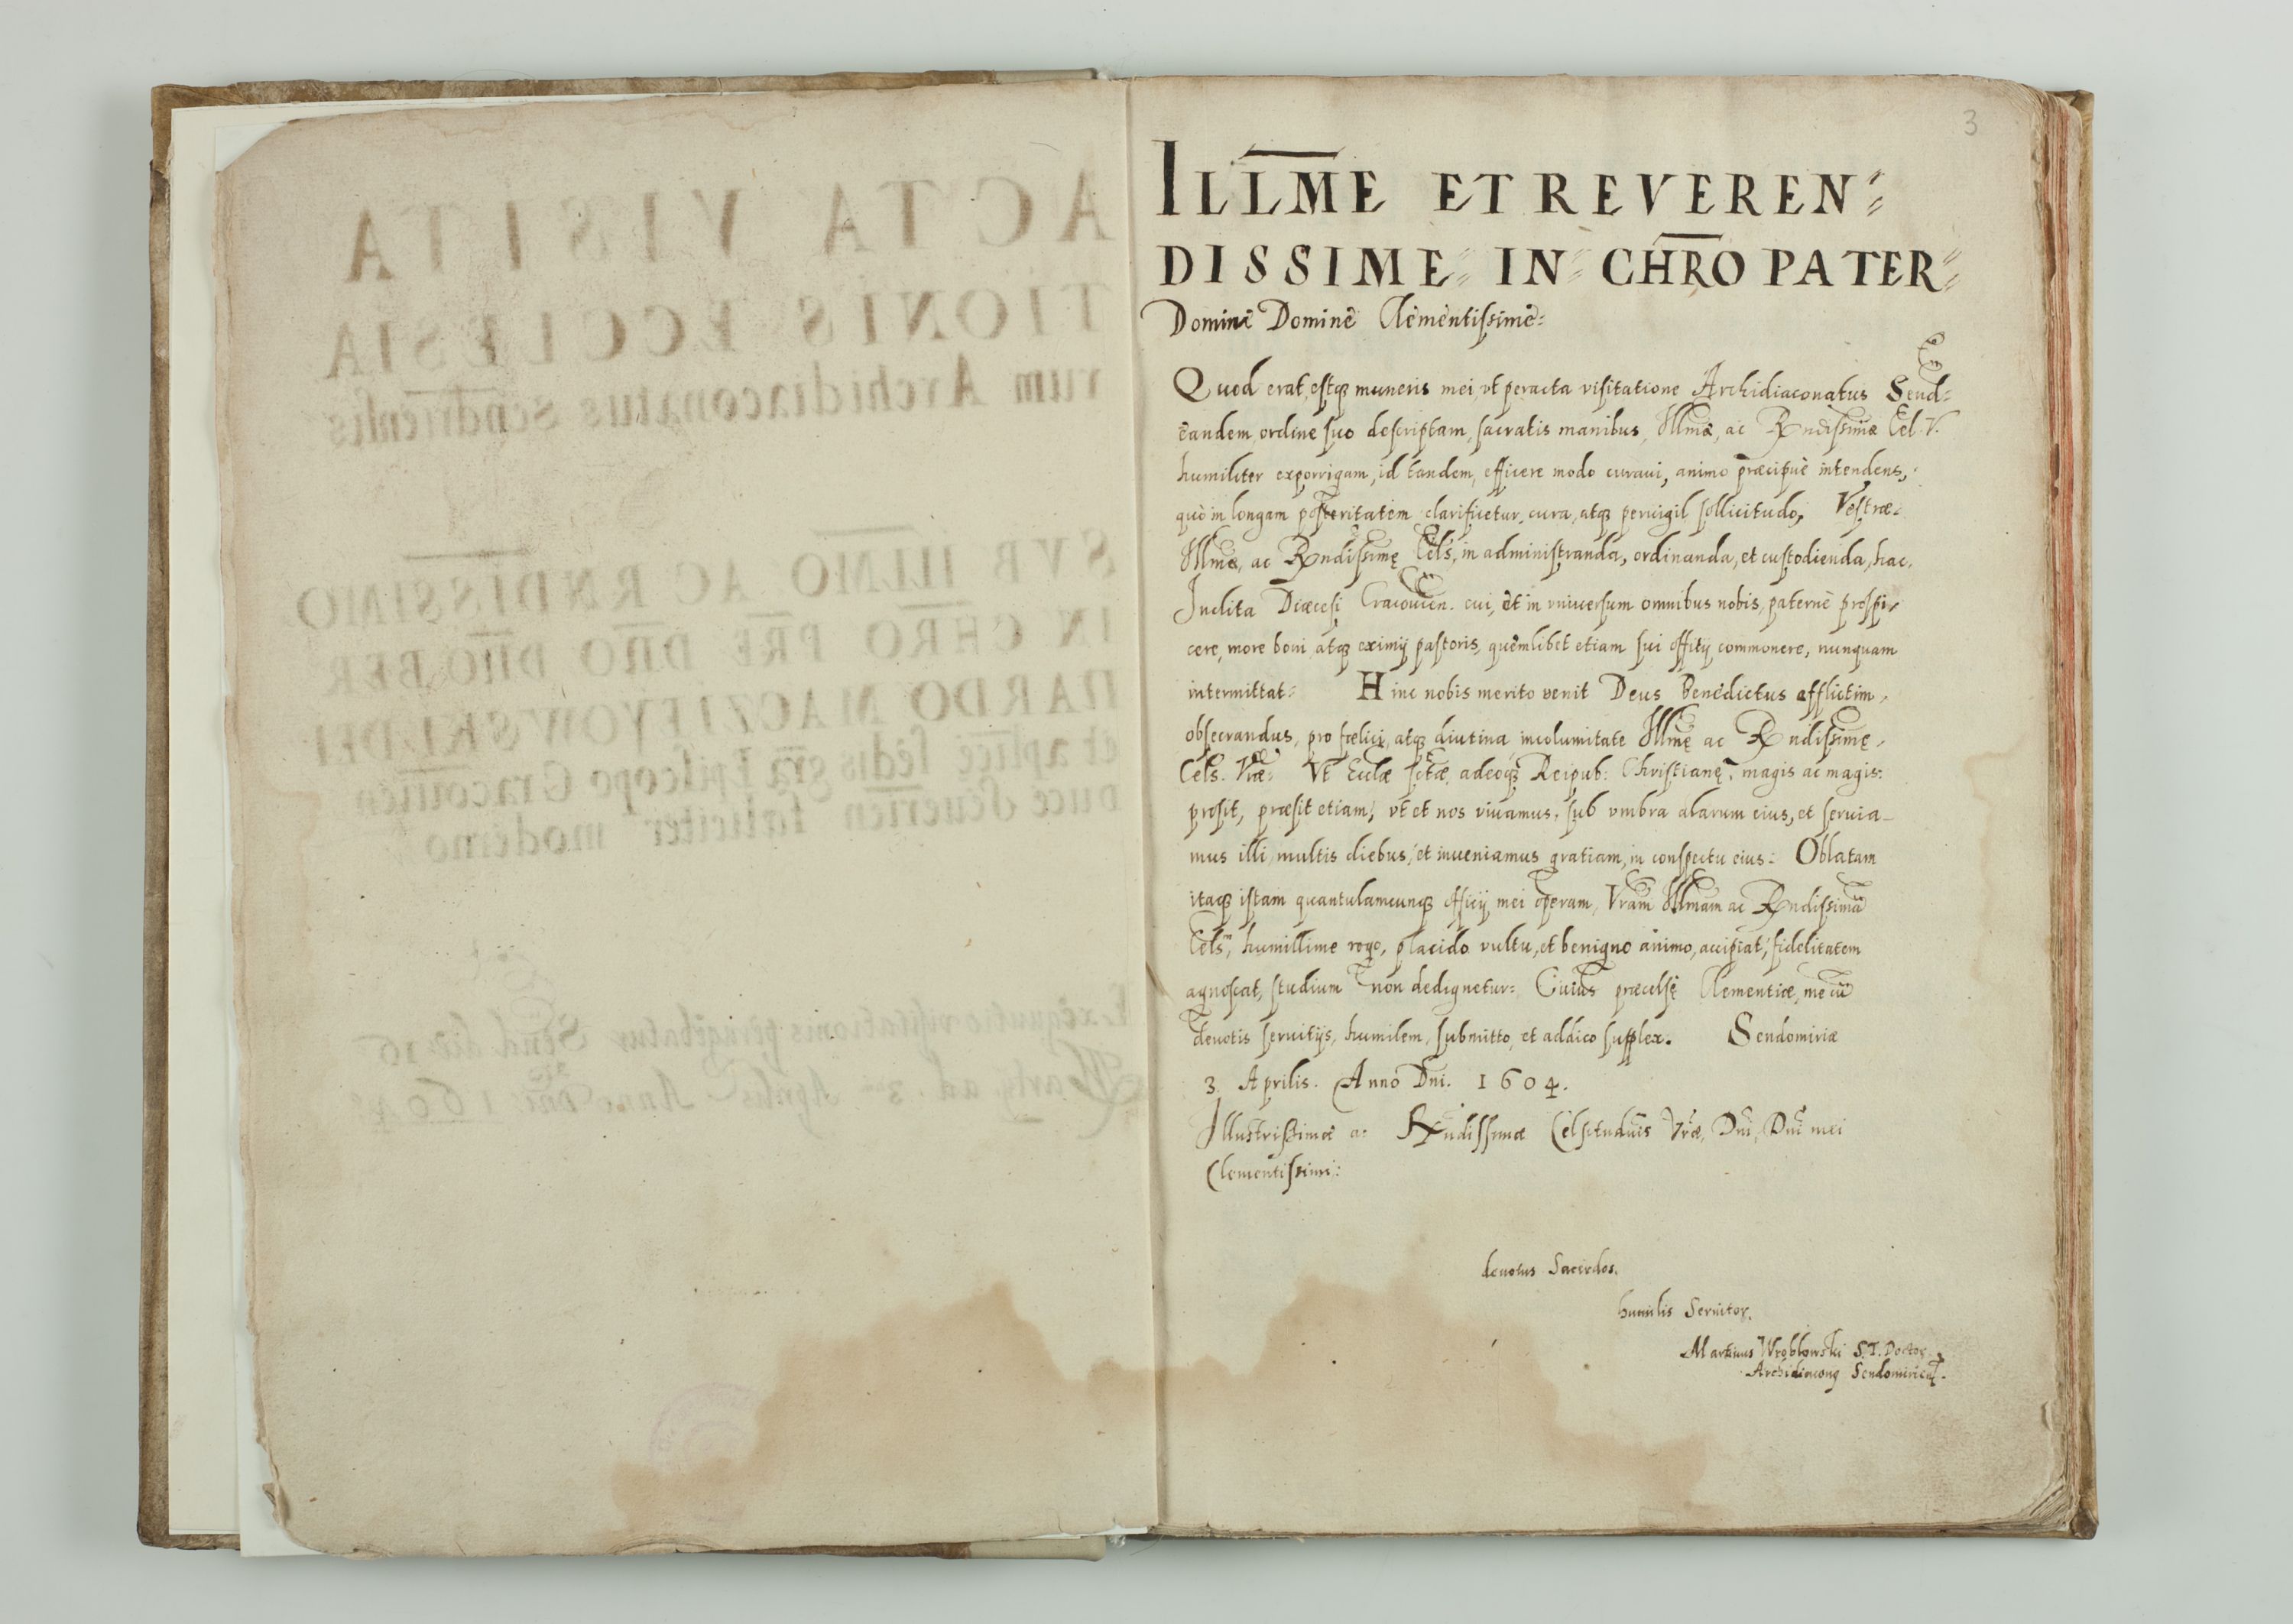 3
ILLME ET REVEREN⸗
DISSIME⸗ IN⸗ CHRO PATER⸗
Domine Domine Clementissime⸗
Quod erat, estq₃ muneris mei, vt peracta visitatione Archidiaconatus Send⸗
eandem, ordine suo descriptam, sacratis manibus, Illmæ, ac Rndissimæ Cel. V.
humiliter exporrigam, id tandem, efficere modo curaui, animo præcipuè intendens,
quò in longam posteritatem clarificetur, cura, atq₃ peruigil sollicitudo, Vestræ
Illmæ, ac Rndissimę Cels, in administranda, ordinanda, et custodienda, hac,
Inclita Diœcesi Cracouien. cui, et in vniuersum omnibus nobis, paternè prospi⸗
cere, more boni atq₃ eximij pastoris, quemlibet etiam sui offitij commonere, nunquam
intermittat⸗ Hinc nobis merito venit Deus Benedictus afflictim,
obsecrandus, pro fœlici, atq₃ diutina incolumitate Illmę ac Rndissimę,
Cels. Vræ⸗ Vt Ecclæ sctæ, adeoq₃ Reipub: Christianę, magis ac magis:
prosit, præsit etiam, vt et nos viuamus, sub vmbra alarum eius, et seruia_
mus illi, multis diebus, et inueniamus gratiam, in conspectu eius: Oblatam
itaq₃ istam quantulamcunq₃ officij mei operam, Vram Illmam ac Rndissimā
Celsm, humillime rogo, placido vultu, et benigno animo, accipiat, fidelitatem
agnoscat, studium non dedignetur: Cuius præcelsę Clementiæ, me cū
deuotis seruitijs, humilem, submitto, et addico supplex. Sendomiriæ
3. Aprilis. Anno Dni. 1604.
Illustrissimæ ac Rndissimæ Celsitudinis Vræ, Dni, Dni mei
Clementissimi:
deuotus Sacerdos,
humilis Seruitor,
Martinus Wroblowski S.T. Doctor
Archidiaconꝰ Sendomirien.
ACTA VISITA
TIONIS ECCLESIA
rum Archidiaconatus Sendriensis
SVB ILLMO AC RNDISSIMO
IN CHRO PRE DNO DNO BER
NARDO MACZIEYOWSKI DEI
et aplicę sedis gra Episcopo Cracouien
Duce Seuerien fœliciter moderno
Exequutio visitationis peragebatur Send. die 16
Martij ad 3 Aprilis Anno Dni 1604